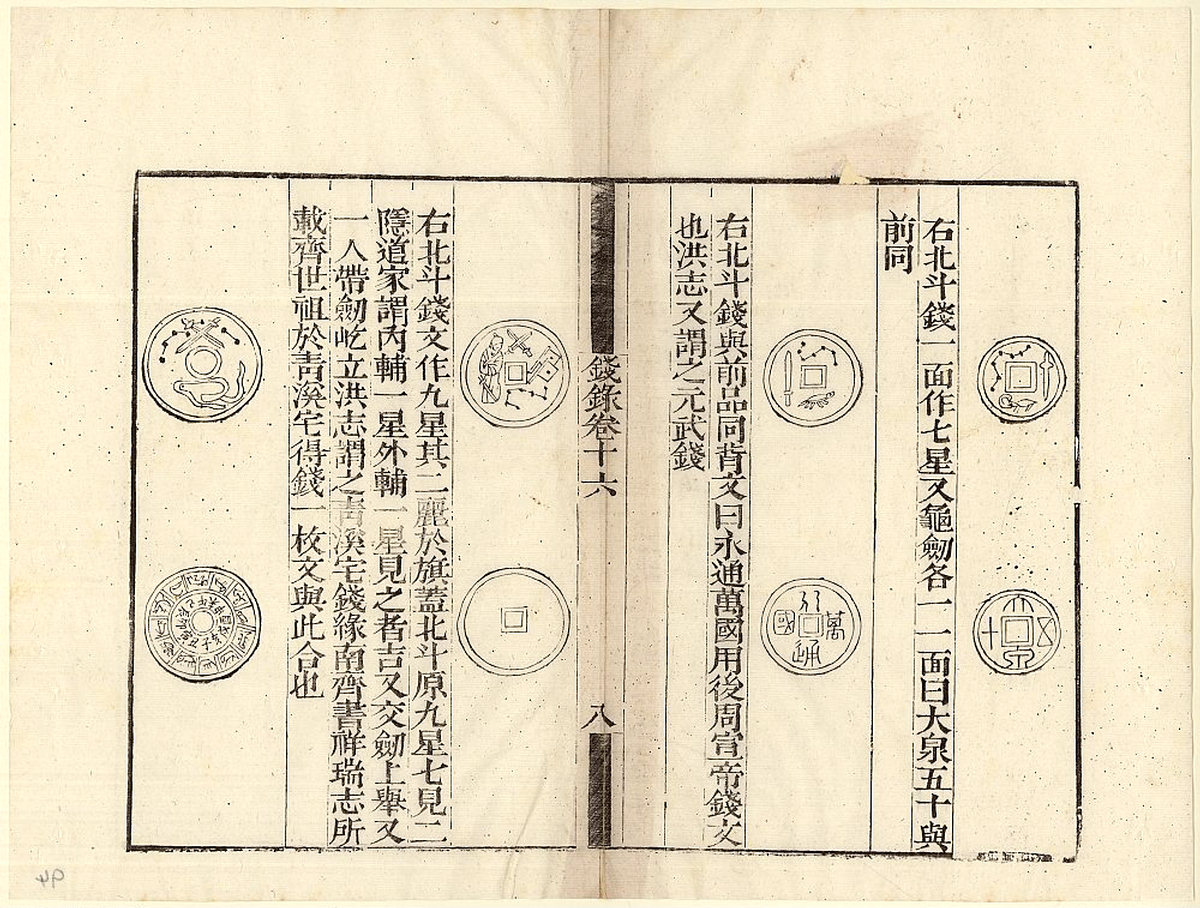 大泉五十
右北斗錢一面作七星又龜劒各一一面曰大泉五十與
前同
永通萬國
右北斗錢與前品同背文曰永通萬國用後周宣帝錢文
也洪志又謂之元武錢
錢錄卷十六
八
右北斗錢文作九星其二麗於旗蓋北斗原九星七見二
隱道家謂內輔一星外輔一星見之者吉又交劒上舉又
一人帶劒屹立洪志謂之青溪宅錢緣南齊書祥瑞志所
載齊世祖於青溪宅得錢一枚文與此合也
94